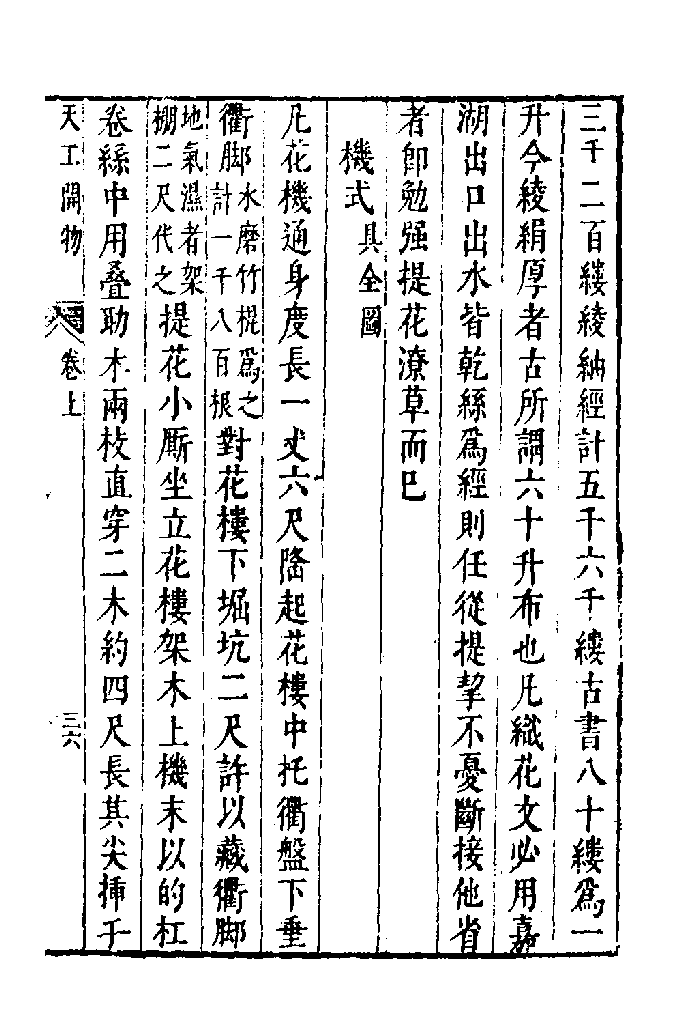 三千二百縷綾紬經計五千六千縷古書八十縷爲一
升今綾絹厚者古所謂六十升布也凡織花文必用嘉
湖出口出水皆乾絲爲經則任從提挈不憂斷接他省
者即勉强提花潦草而已
機式具全圖
凡花機通身度長一丈六尺隆起花樓中托衢盤下垂
衢脚水磨竹棍爲之計一千八百根對花樓下堀坑二尺許以藏衢脚
地氣濕者架棚二尺代之提花小厮坐立花樓架木上機末以的杠
卷絲中用疊助木兩枝直穿二木約四尺長其尖揷于
天工開物 卷上 三六